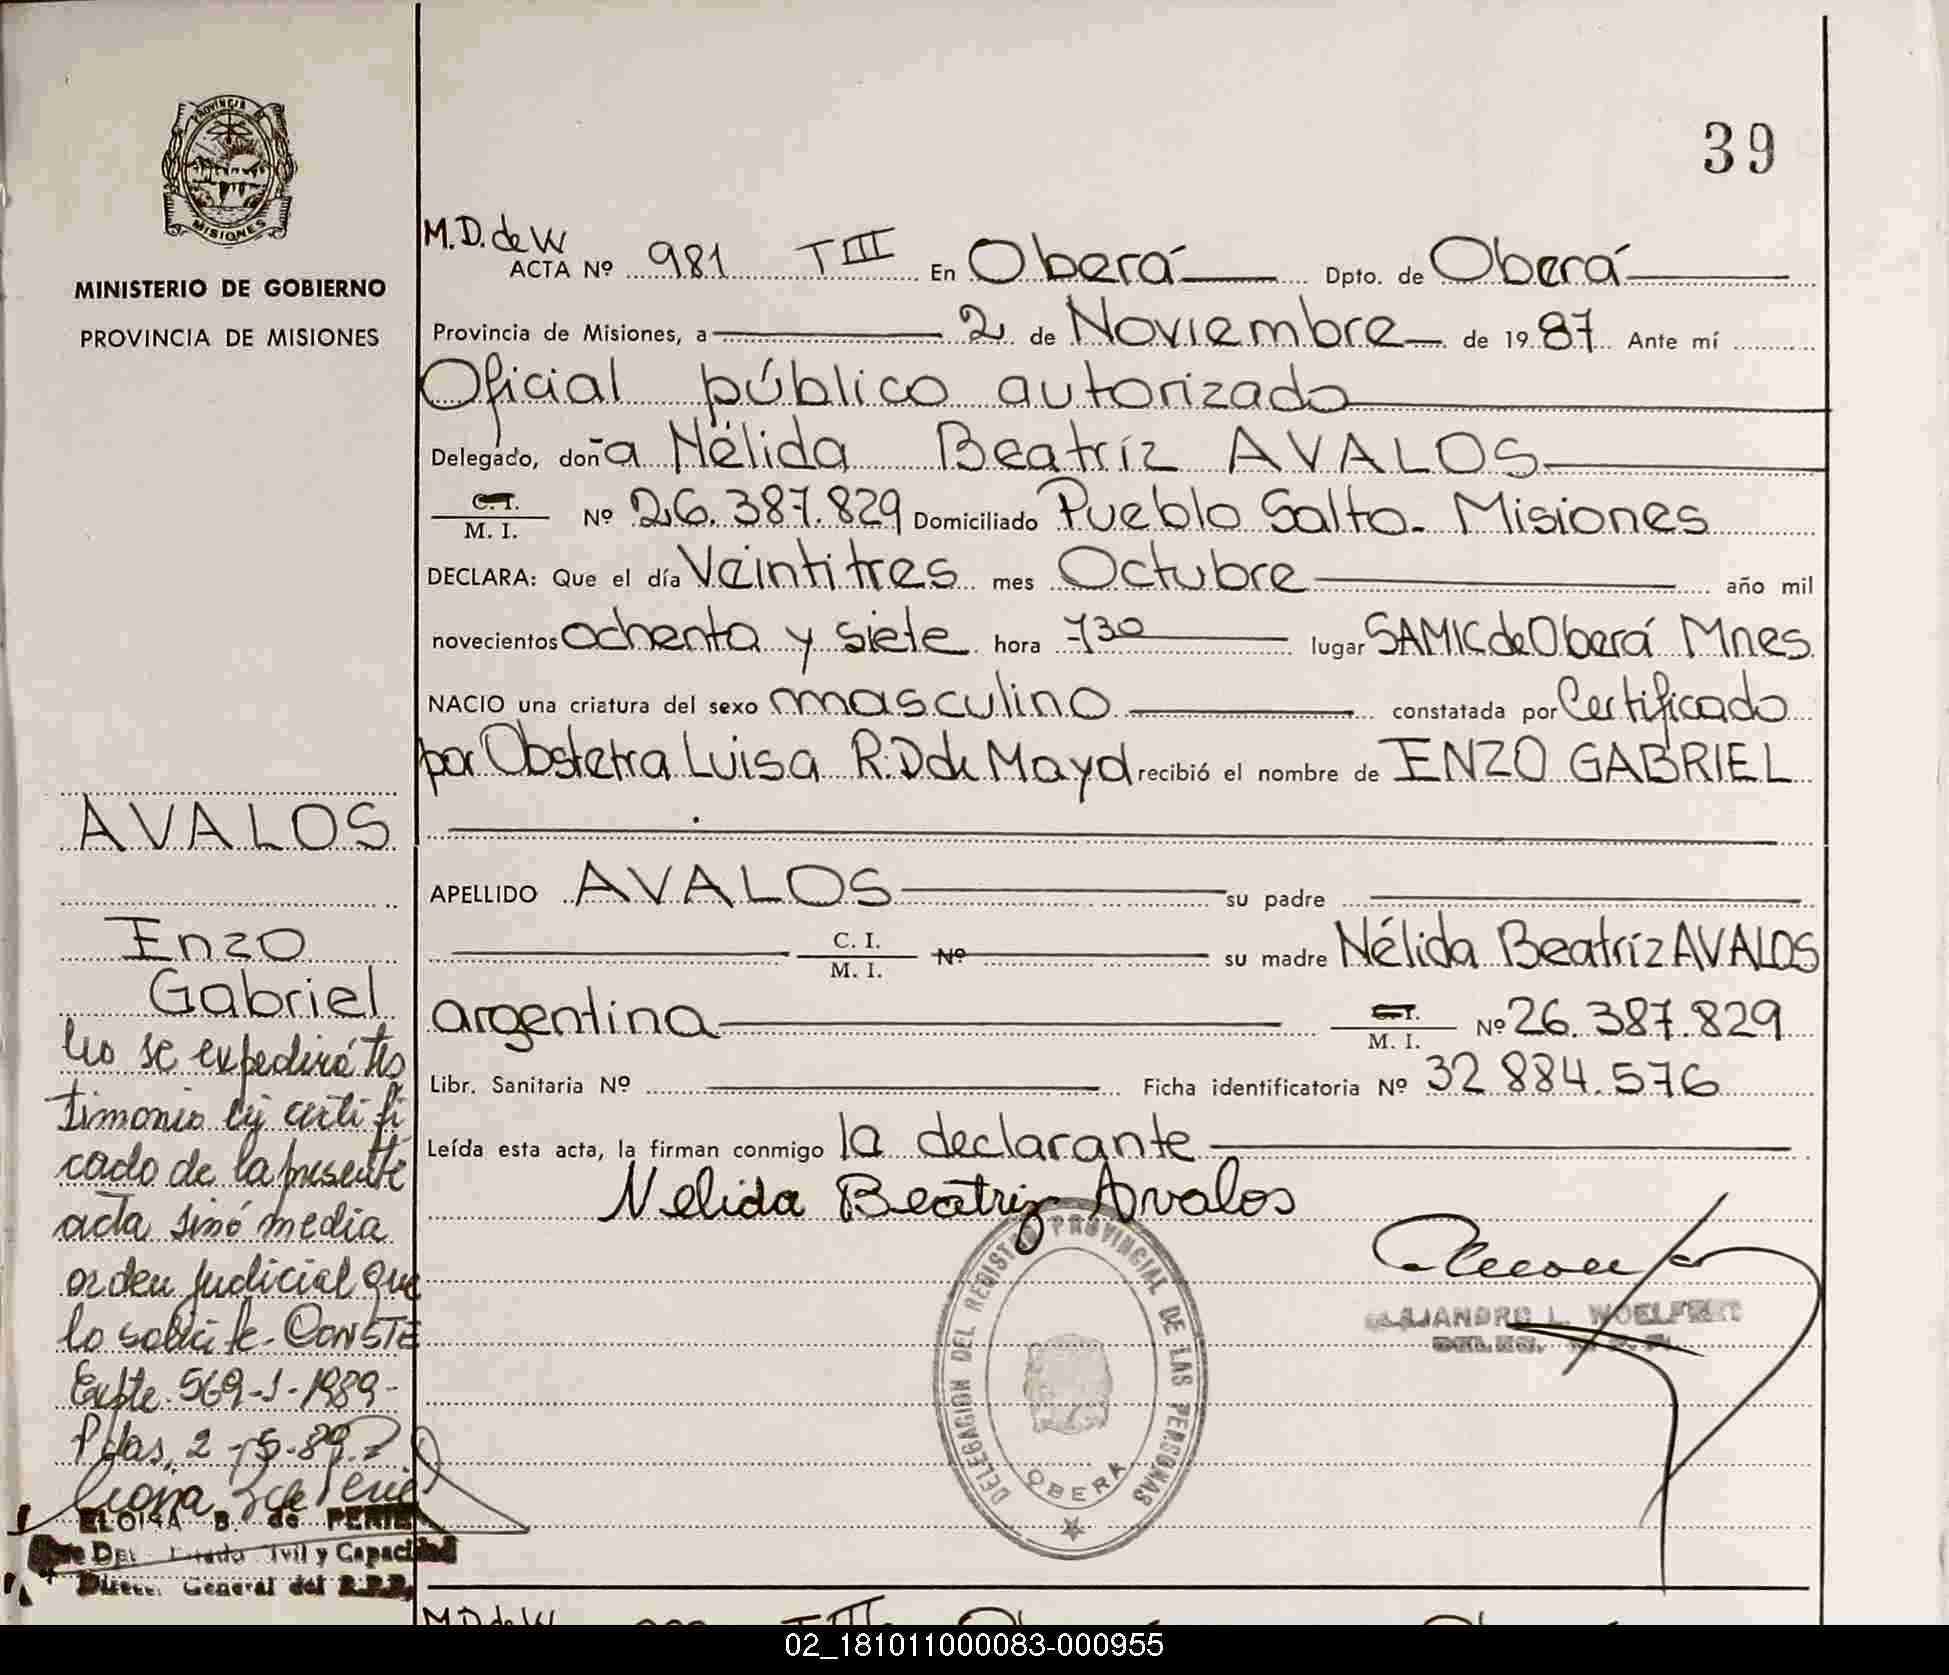 PROVINCIA DE
MISIONES
MINISTERIO DE GOBIERNO
PROVINCIA DE MISIONES
39
M.D. de W
ACTA Nº 981 TIII En Oberá Dpto. de Oberá
Provincia de Misiones, a 2 de Noviembre de 1987 Ante mí
Oficial público autorizado
Delegado, doña Nélida Beatríz AVALOS
C. I.
M. I. Nº 26.387.829 Domiciliado Pueblo Salto - Misiones
DECLARA: Que el día Veintitres mes Octubre año mil
novecientos ochenta y siete hora 730 lugar SAMIC de Oberá Mnes
NACIO una criatura del sexo masculino constatada por Certificado
por Obstetra Luisa R.D de Mayd recibió el nombre de ENZO GABRIEL
APELLIDO AVALOS su padre
C. I.
M. I. Nº su madre Nélida Beatríz AVALOS
argentina C. I.
M. I. Nº 26.387.829
Libr. Sanitaria Nº Ficha identificatoria Nº 32.884.576
Leída esta acta, la firman conmigo la declarante
Nelida Beatriz Avalos
DELEGACION DEL REGISTRO PROVINCIAL DE LAS PERSONAS
OBERA
ALEJANDRO L.
AVALOS
Enzo
Gabriel
No se expedirá tes
timonio y certifi
cado de la presente
acta sinó media
orden judicial que
lo solicite - CONSTE
Expte. 569-J-1989-
Pdas, 2-5-89
ELOISA B. de PERIE
Dpt. Estado Civil y Capacidad
General del R.P.P.
M.D. de W TIII
02_181011000083-000955